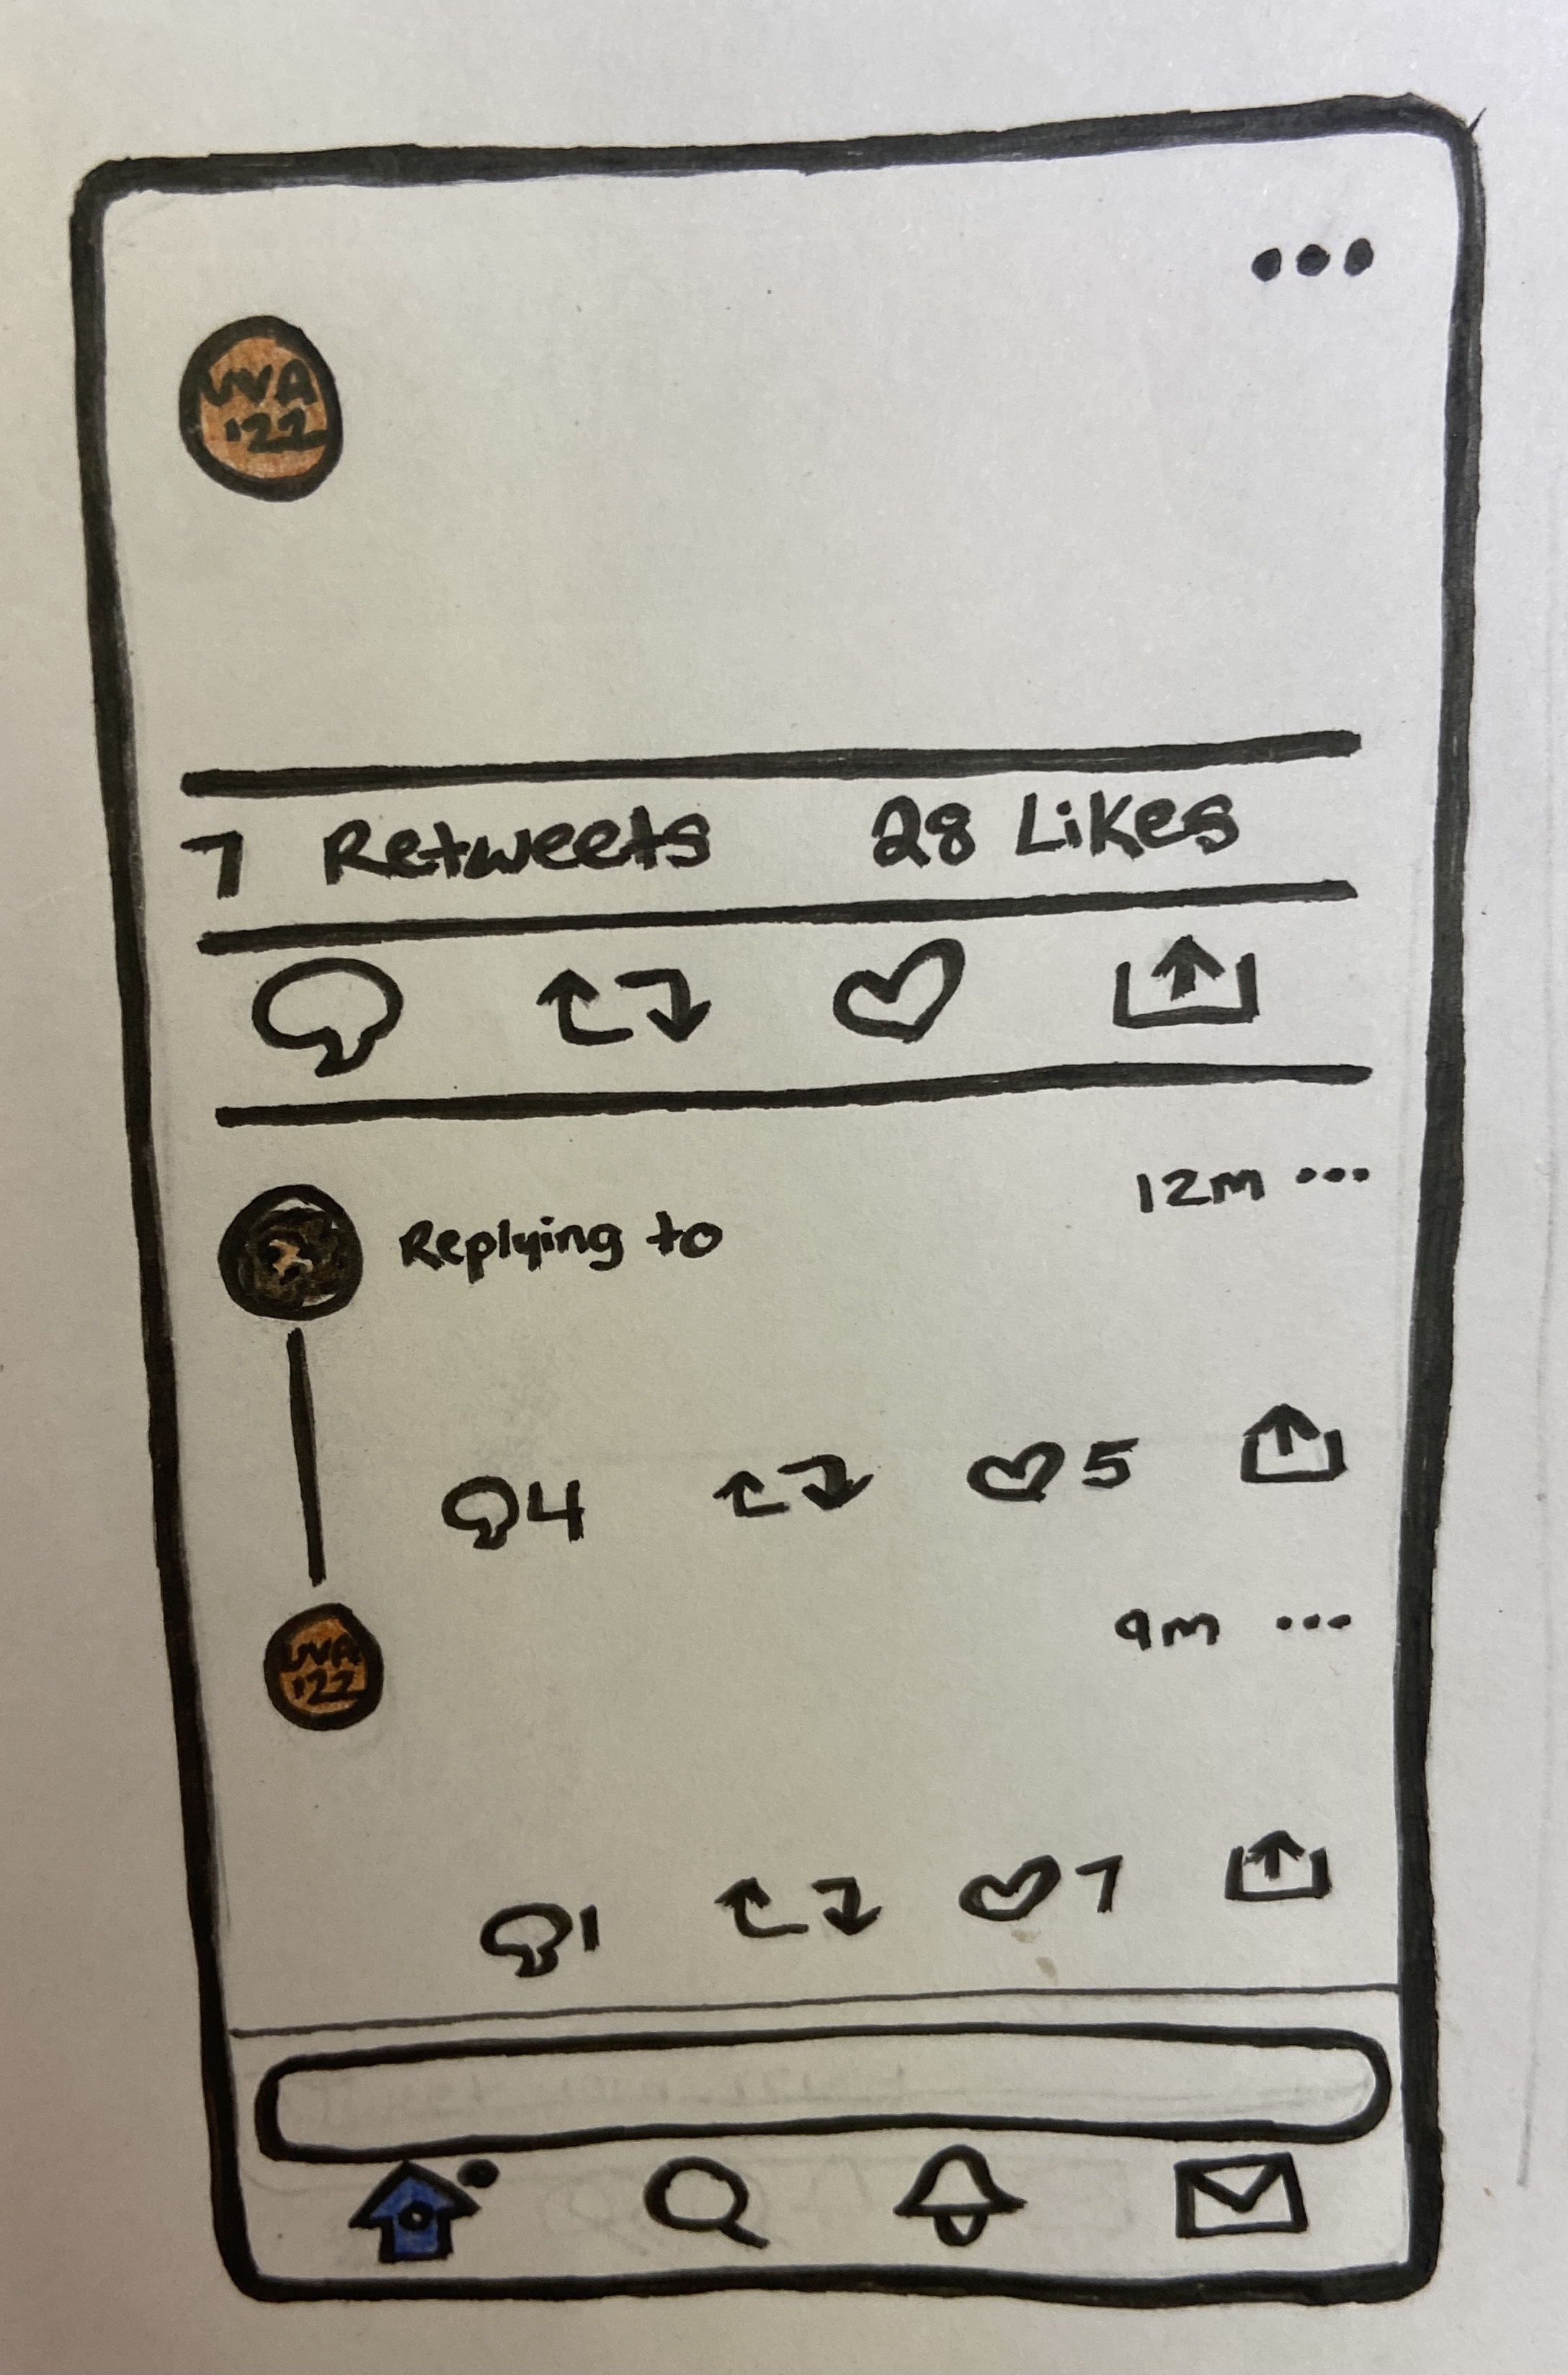 UVA
'22
7 Retweets 28 Likes
12m
Replying to
4 5
9m
UVA
'22
1 7